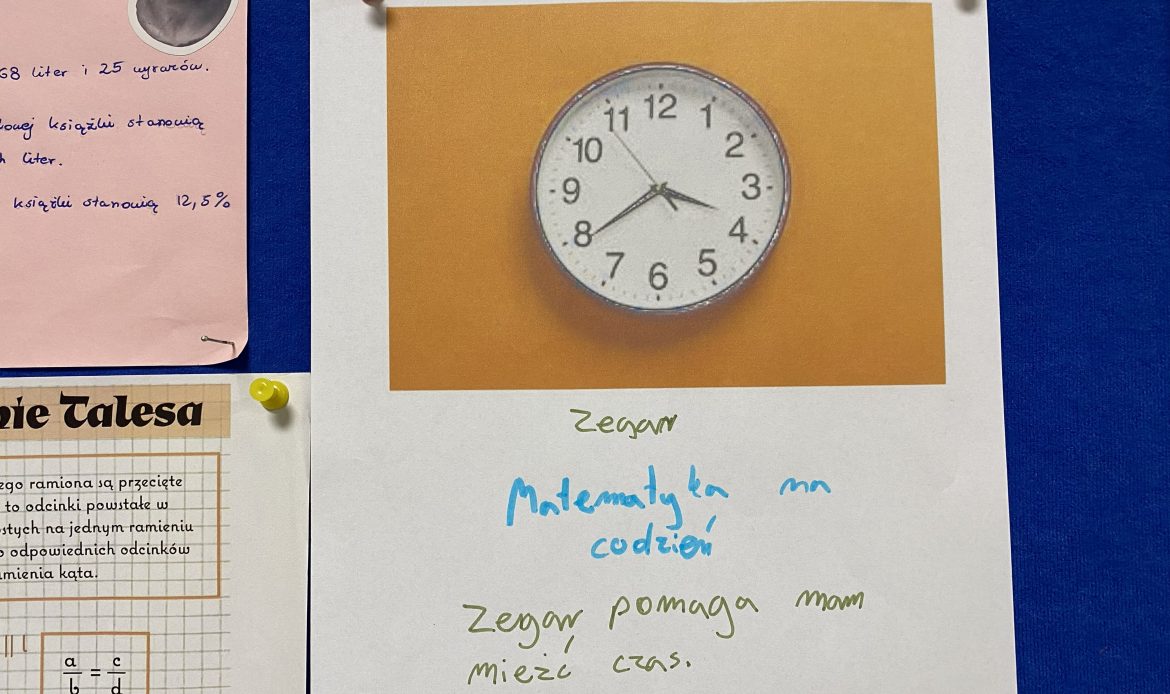 68 liter i 25 wyrazów.
książki stanowią
liter.
książki stanowią 12,5%
nie Talesa
ego ramiona są przecięte
to odcinki powstałe w
stych na jednym ramieniu
odpowiednich odcinków
mienia kąta.
a/b = c/d
12
11 1
10 2
9 3
8 4
7 5
6
Zegar
Matematyka na
codzień
Zegar pomaga nam
mieżć czas.